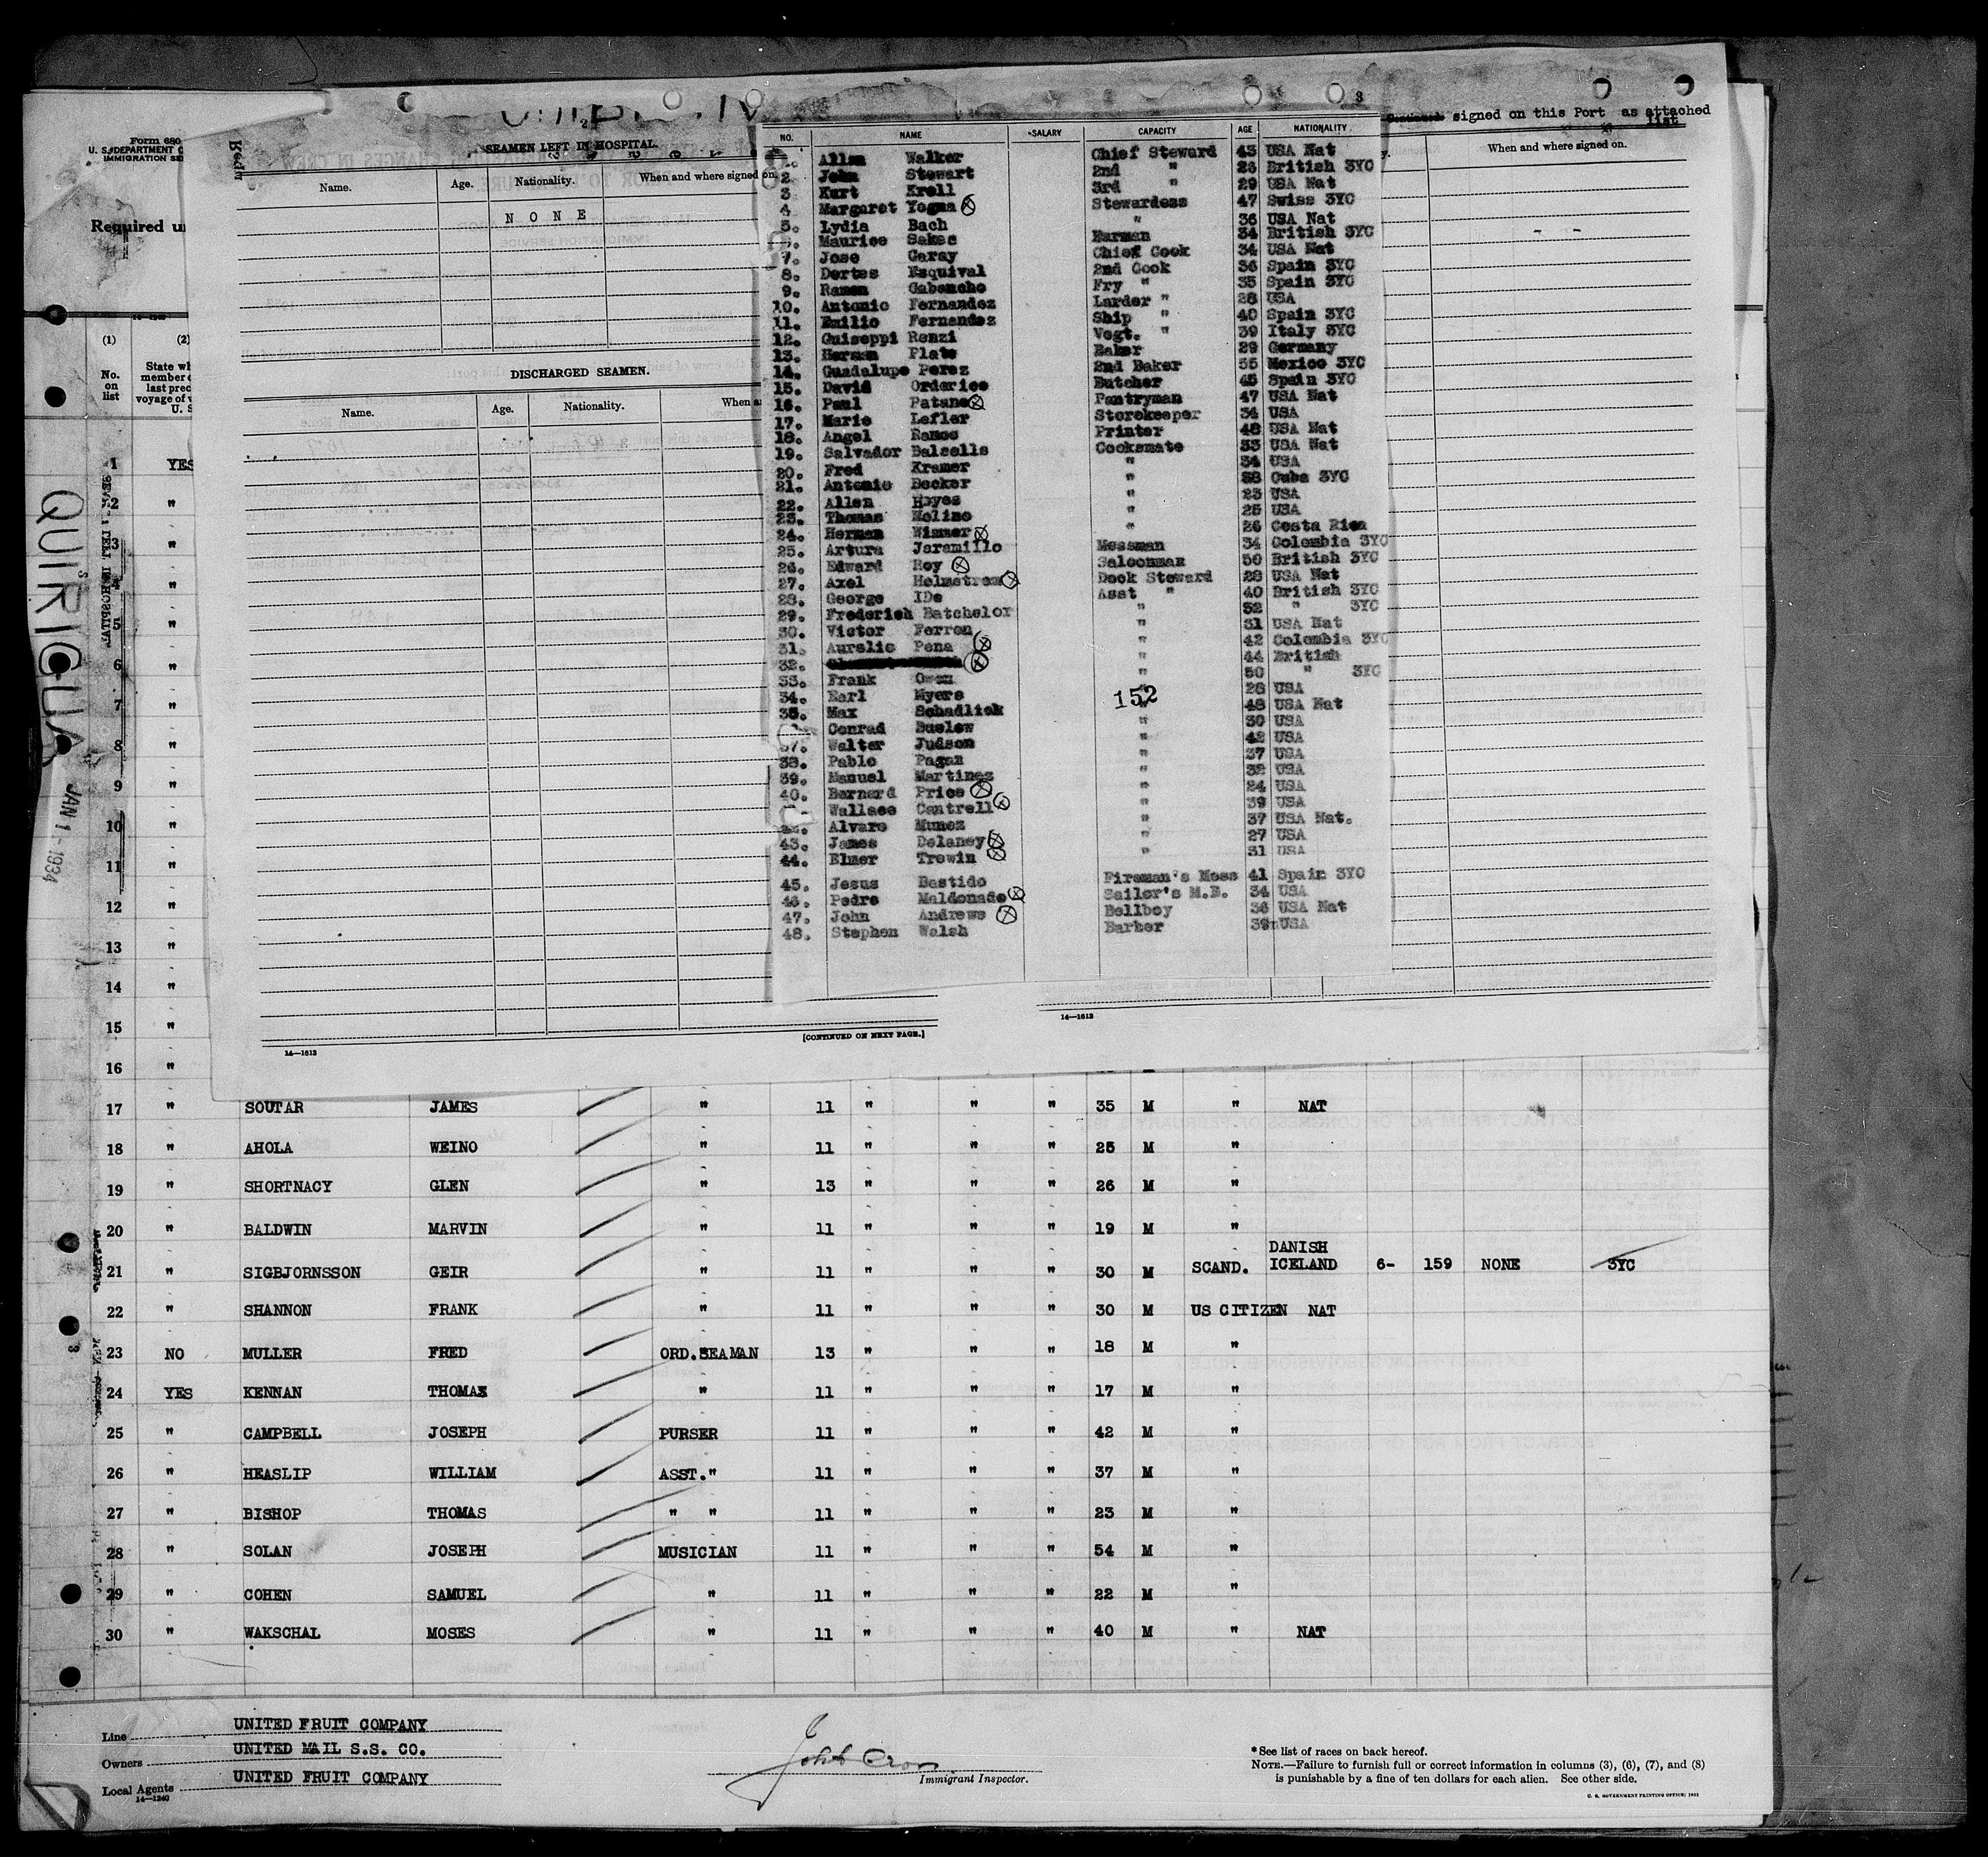 Form 680
U. S. DEPARTMENT
IMMIGRATION
Required
(1) (2)
No. on list
State
member
last
voyage of
U. S.
QUIRIGUA
JAN 1 - 1934
SEAMEN LEFT IN HOSPITAL.
Name. Age. Nationality. When and where signed on.
N O N E
DISCHARGED SEAMEN.
Name. Age. Nationality. When
[CONTINUED ON NEXT PAGE.]
14—1613
signed on this Port as attached
list
When and where signed on.
- -
14—1613
3
NO. NAME SALARY CAPACITY AGE NATIONALITY
Allen Walker Chief Steward 43 USA Nat
2. John Stewart 2nd " 26 British 3YC
3 Kurt Kroll 3rd " 29 USA Nat
4. Margaret Yogma Stewardess 47 Swiss 3YC
5. Lydia Bach " 36 USA Nat
Maurice Sakec Barman 34 British 3YC
7. Jose Garay Chief Cook 34 USA Nat
8. Dortes Esquival 2nd Cook 36 Spain 3YC
9. Ramon Gabancho Fry " 35 Spain 3YC
10. Antonio Fernandez Larder " 28 USA
11. Emilio Fernandez Ship " 40 Spain 3YC
12. Guiseppi Renzi Vegt. " 39 Italy 3YC
13. Herman Plate Baker 29 Germany
14. Guadalupe Perez 2nd Baker 55 Mexico 3YC
15. David Orderice Butcher 45 Spain 3YC
16. Paul Patane Pantryman 47 USA Nat
17. Marie Lefler Storekeeper 34 USA
18. Angel Ramos Printer 48 USA Nat
19. Salvador Balcells Cooksmate 33 USA Nat
20. Fred Kramer " 34 USA
21. Antonio Becker " 38 Cuba 3YC
22. Allen Hayes " 23 USA
23. Thomas Molino " 25 USA
24. Herman Wimmer " 26 Costa Rica
25. Arturo Jaramillo Messman 34 Colombia 3YC
26. Edward Roy Saloonman 50 British 3YC
27. Axel Holmstrom Deck Steward 28 USA Nat
28. George IDe Asst " 40 British 3YC
29. Frederick Batchelor " 52 " 3YC
30. Victor Ferron " 31 USA Nat
31. Aurelio Pena " 42 Colombia 3YC
32. " 44 British
33. Frank Owen " 50 " 3YC
34. Earl Myers 152 28 USA
35. Max Schadlick " 48 USA Nat
Conrad Buslew " 30 USA
37. Walter Judson " 42 USA
38. Pablo Pagan " 37 USA
39. Manuel Martinez " 32 USA
40. Bernard Price " 24 USA
Wallace Cantrell " 39 USA
Alvaro Munoz " 37 USA Nat.
43. James Delaney " 27 USA
44. Elmer Trewin " 31 USA
45. Jesus Bastido Fireman's Mess 41 Spain 3YC
46. Pedro Maldonado Sailor's M.B. 34 USA
47. John Andrews Bellboy 36 USA Nat
48. Stephen Walsh Barber 39 USA
1 YES
2 "
3 "
4 "
5 "
6 "
7 "
8 "
9 "
10 "
11 "
12 "
13 "
14 "
15 "
16 "
17 " SOUTAR JAMES " 11 " " " 35 M " NAT
18 " AHOLA WEINO " 11 " " " 25 M "
19 " SHORTNACY GLEN " 13 " " " 26 M "
20 " BALDWIN MARVIN " 11 " " " 19 M "
21 " SIGBJORNSSON GEIR " 11 " " " 30 M SCAND. DANISH ICELAND 6- 159 NONE 3YC
22 " SHANNON FRANK " 11 " " " 30 M US CITIZEN NAT
23 NO MULLER FRED ORD.SEAMAN 13 " " " 18 M "
24 YES KENNAN THOMAS " 11 " " " 17 M "
25 " CAMPBELL JOSEPH PURSER 11 " " " 42 M "
26 " HEASLIP WILLIAM ASST." 11 " " " 37 M "
27 " BISHOP THOMAS " " 11 " " " 23 M "
28 " SOLAN JOSEPH MUSICIAN 11 " " " 54 M "
29 " COHEN SAMUEL " 11 " " " 22 M "
30 " WAKSCHAL MOSES " 11 " " " 40 M " NAT
Line UNITED FRUIT COMPANY
Owners UNITED MAIL S.S. CO.
Local Agents UNITED FRUIT COMPANY
14—1240
John
Immigrant Inspector.
*See list of races on back hereof.
NOTE.—Failure to furnish full or correct information in columns (3), (6), (7), and (8)
is punishable by a fine of ten dollars for each alien. See other side.
U. S. GOVERNMENT PRINTING OFFICE: 1932